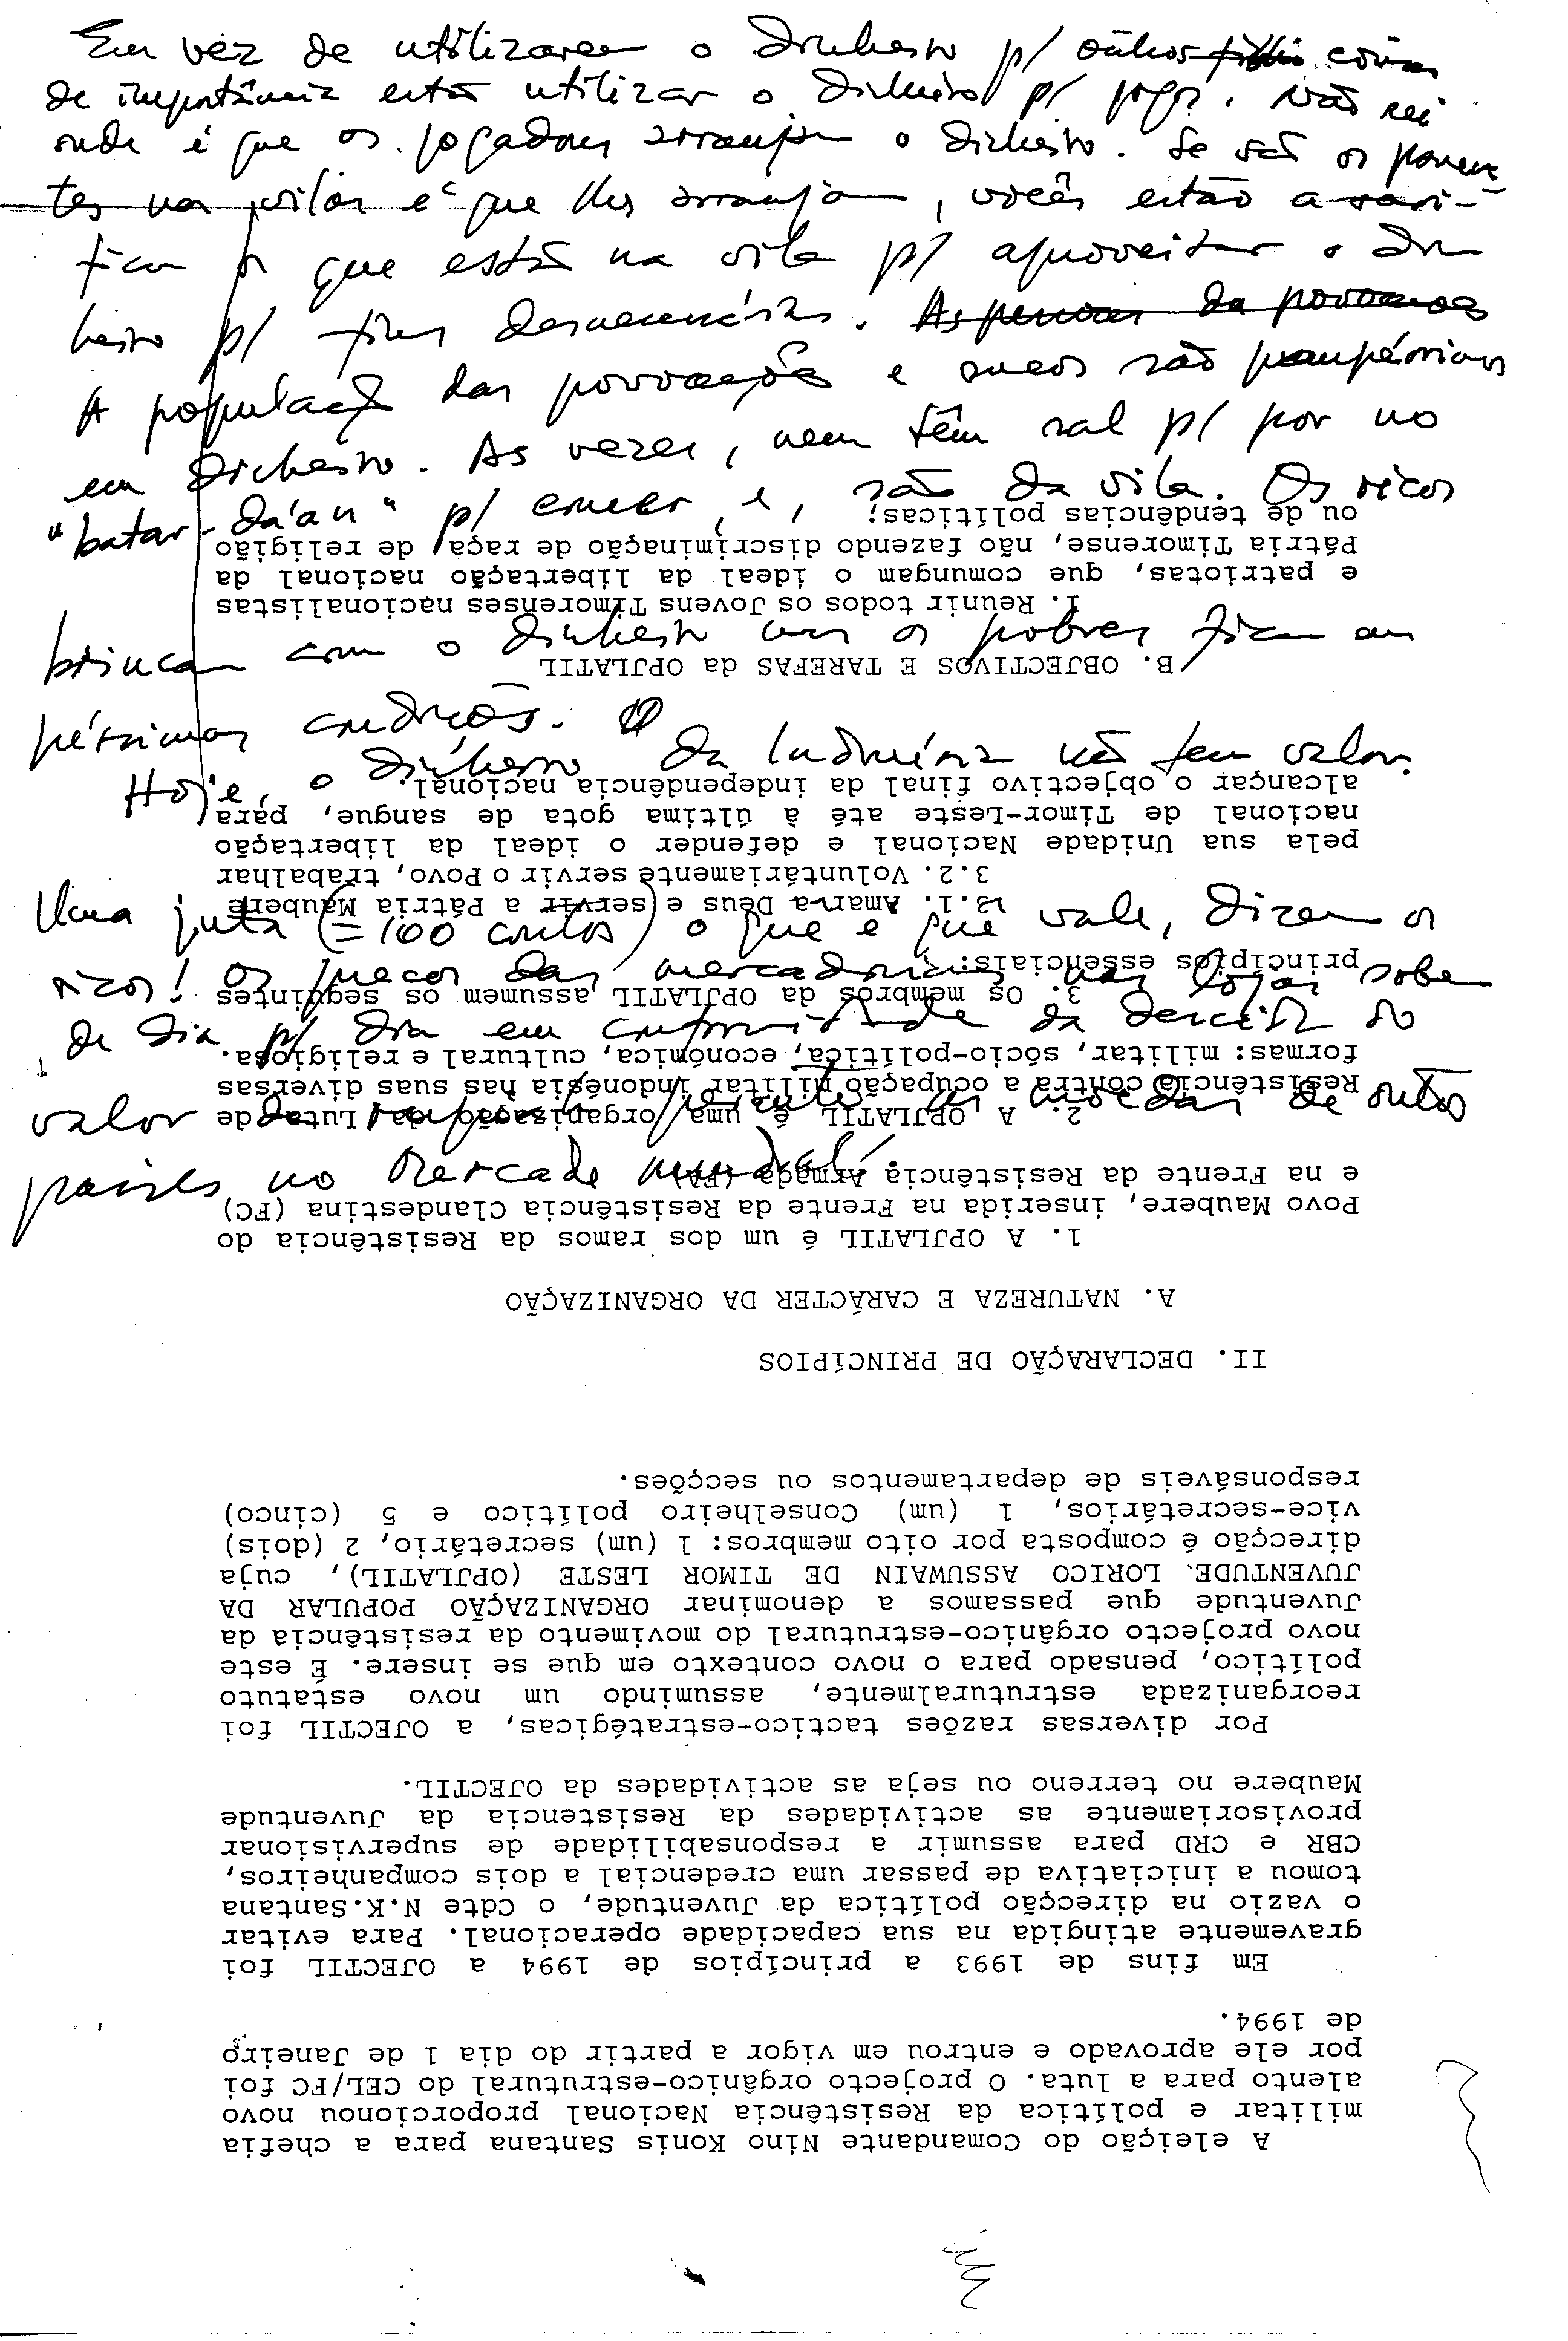 Em vez de utilizarem o dinheiro p/ outros coisas
de importância está utilizar o dinheiro p/ jogo. Não sei
onde é que os jogadores arranjam o dinheiro. Se são os paren-
tes nas vilas é que lhes arranjam, vocês estão a
ficar que está na vila p/ aproveitar o din
heiro p/ fins desnecessários. As pessoas da povoações
A população das povoações e sucos são paupérrimos
em dinheiro. As vezes, nem têm sal p/ por no
"batar-dá'an" p/ comer, e, são da vila. Os ricos
brincam com o dinheiro mas os pobres ficam em
péssimas condições.
Hoje, o dinheiro da Indonésia não tem valor.
Uma juta (= 100 contos) o que é que vale, dizem os
ricos! Os preços das mercadorias nas lojas sobem
de dia p/ dia em conformidade da descida do
valor da rupia perante as moedas de outros
países no Mercado mundial.
A eleição do Comandante Nino Konis Santana para a chefia
militar e política da Resistência Nacional proporcionou novo
alento para a luta. O projecto orgânico-estrutural do CEL/FC foi
por ele aprovado e entrou em vigor a partir do dia 1 de Janeiro
de 1994.
Em fins de 1993 a princípios de 1994 a OJECTIL foi
gravemente atingida na sua capacidade operacional. Para evitar
o vazio na direcção política da Juventude, o Cdte N.K.Santana
tomou a iniciativa de passar uma credencial a dois companheiros,
CBR e CRD para assumir a responsabilidade de supervisionar
provisoriamente as actividades da Resistencia da Juventude
Maubere no terreno ou seja as actividades da OJECTIL.
Por diversas razões tactico-estratégicas, a OJECTIL foi
reorganizada estruturalmente, assumindo um novo estatuto
político, pensado para o novo contexto em que se insere. É este
novo projecto orgânico-estrutural do movimento da resistência da
Juventude que passamos a denominar ORGANIZAÇÃO POPULAR DA
JUVENTUDE LORICO ASSUWAIN DE TIMOR LESTE (OPJLATIL), cuja
direcção é composta por oito membros: 1 (um) secretário, 2 (dois)
vice-secretários, 1 (um) Conselheiro político e 5 (cinco)
responsáveis de departamentos ou secções.
II. DECLARAÇÃO DE PRINCÍPIOS
A. NATUREZA E CARÁCTER DA ORGANIZAÇÃO
1. A OPJLATIL é um dos ramos da Resistência do
Povo Maubere, inserida na Frente da Resistência Clandestina (FC)
e na Frente da Resistência Armada (FA)
2. A OPJLATIL é uma organização da Luta de
Resistência contra a ocupação militar indonésia nas suas diversas
formas: militar, sócio-política, económica, cultural e religiosa.
3. Os membros da OPJLATIL assumem os seguintes
princípios essenciais:
3.1. Amar a Deus e servir a Pátria Maubere
3.2. Voluntáriamente servir o Povo, trabalhar
pela sua Unidade Nacional e defender o ideal da libertação
nacional de Timor-Leste até à última gota de sangue, para
alcançar o objectivo final da independência nacional.
B. OBJECTIVOS E TAREFAS da OPJLATIL
1. Reunir todos os Jovens Timorenses nacionalistas
e patriotas, que comungam o ideal da libertação nacional da
Pátria Timorense, não fazendo discriminação de raça, de religião
ou de tendências políticas;